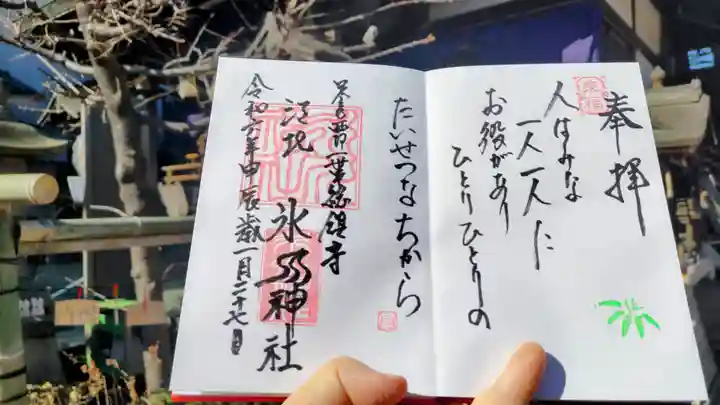 奉拝
人はみな
一人一人に
お役があり
ひとりひとりの
たいせつなちから
江北
氷川神社
令和六年甲辰歳一月二十七日